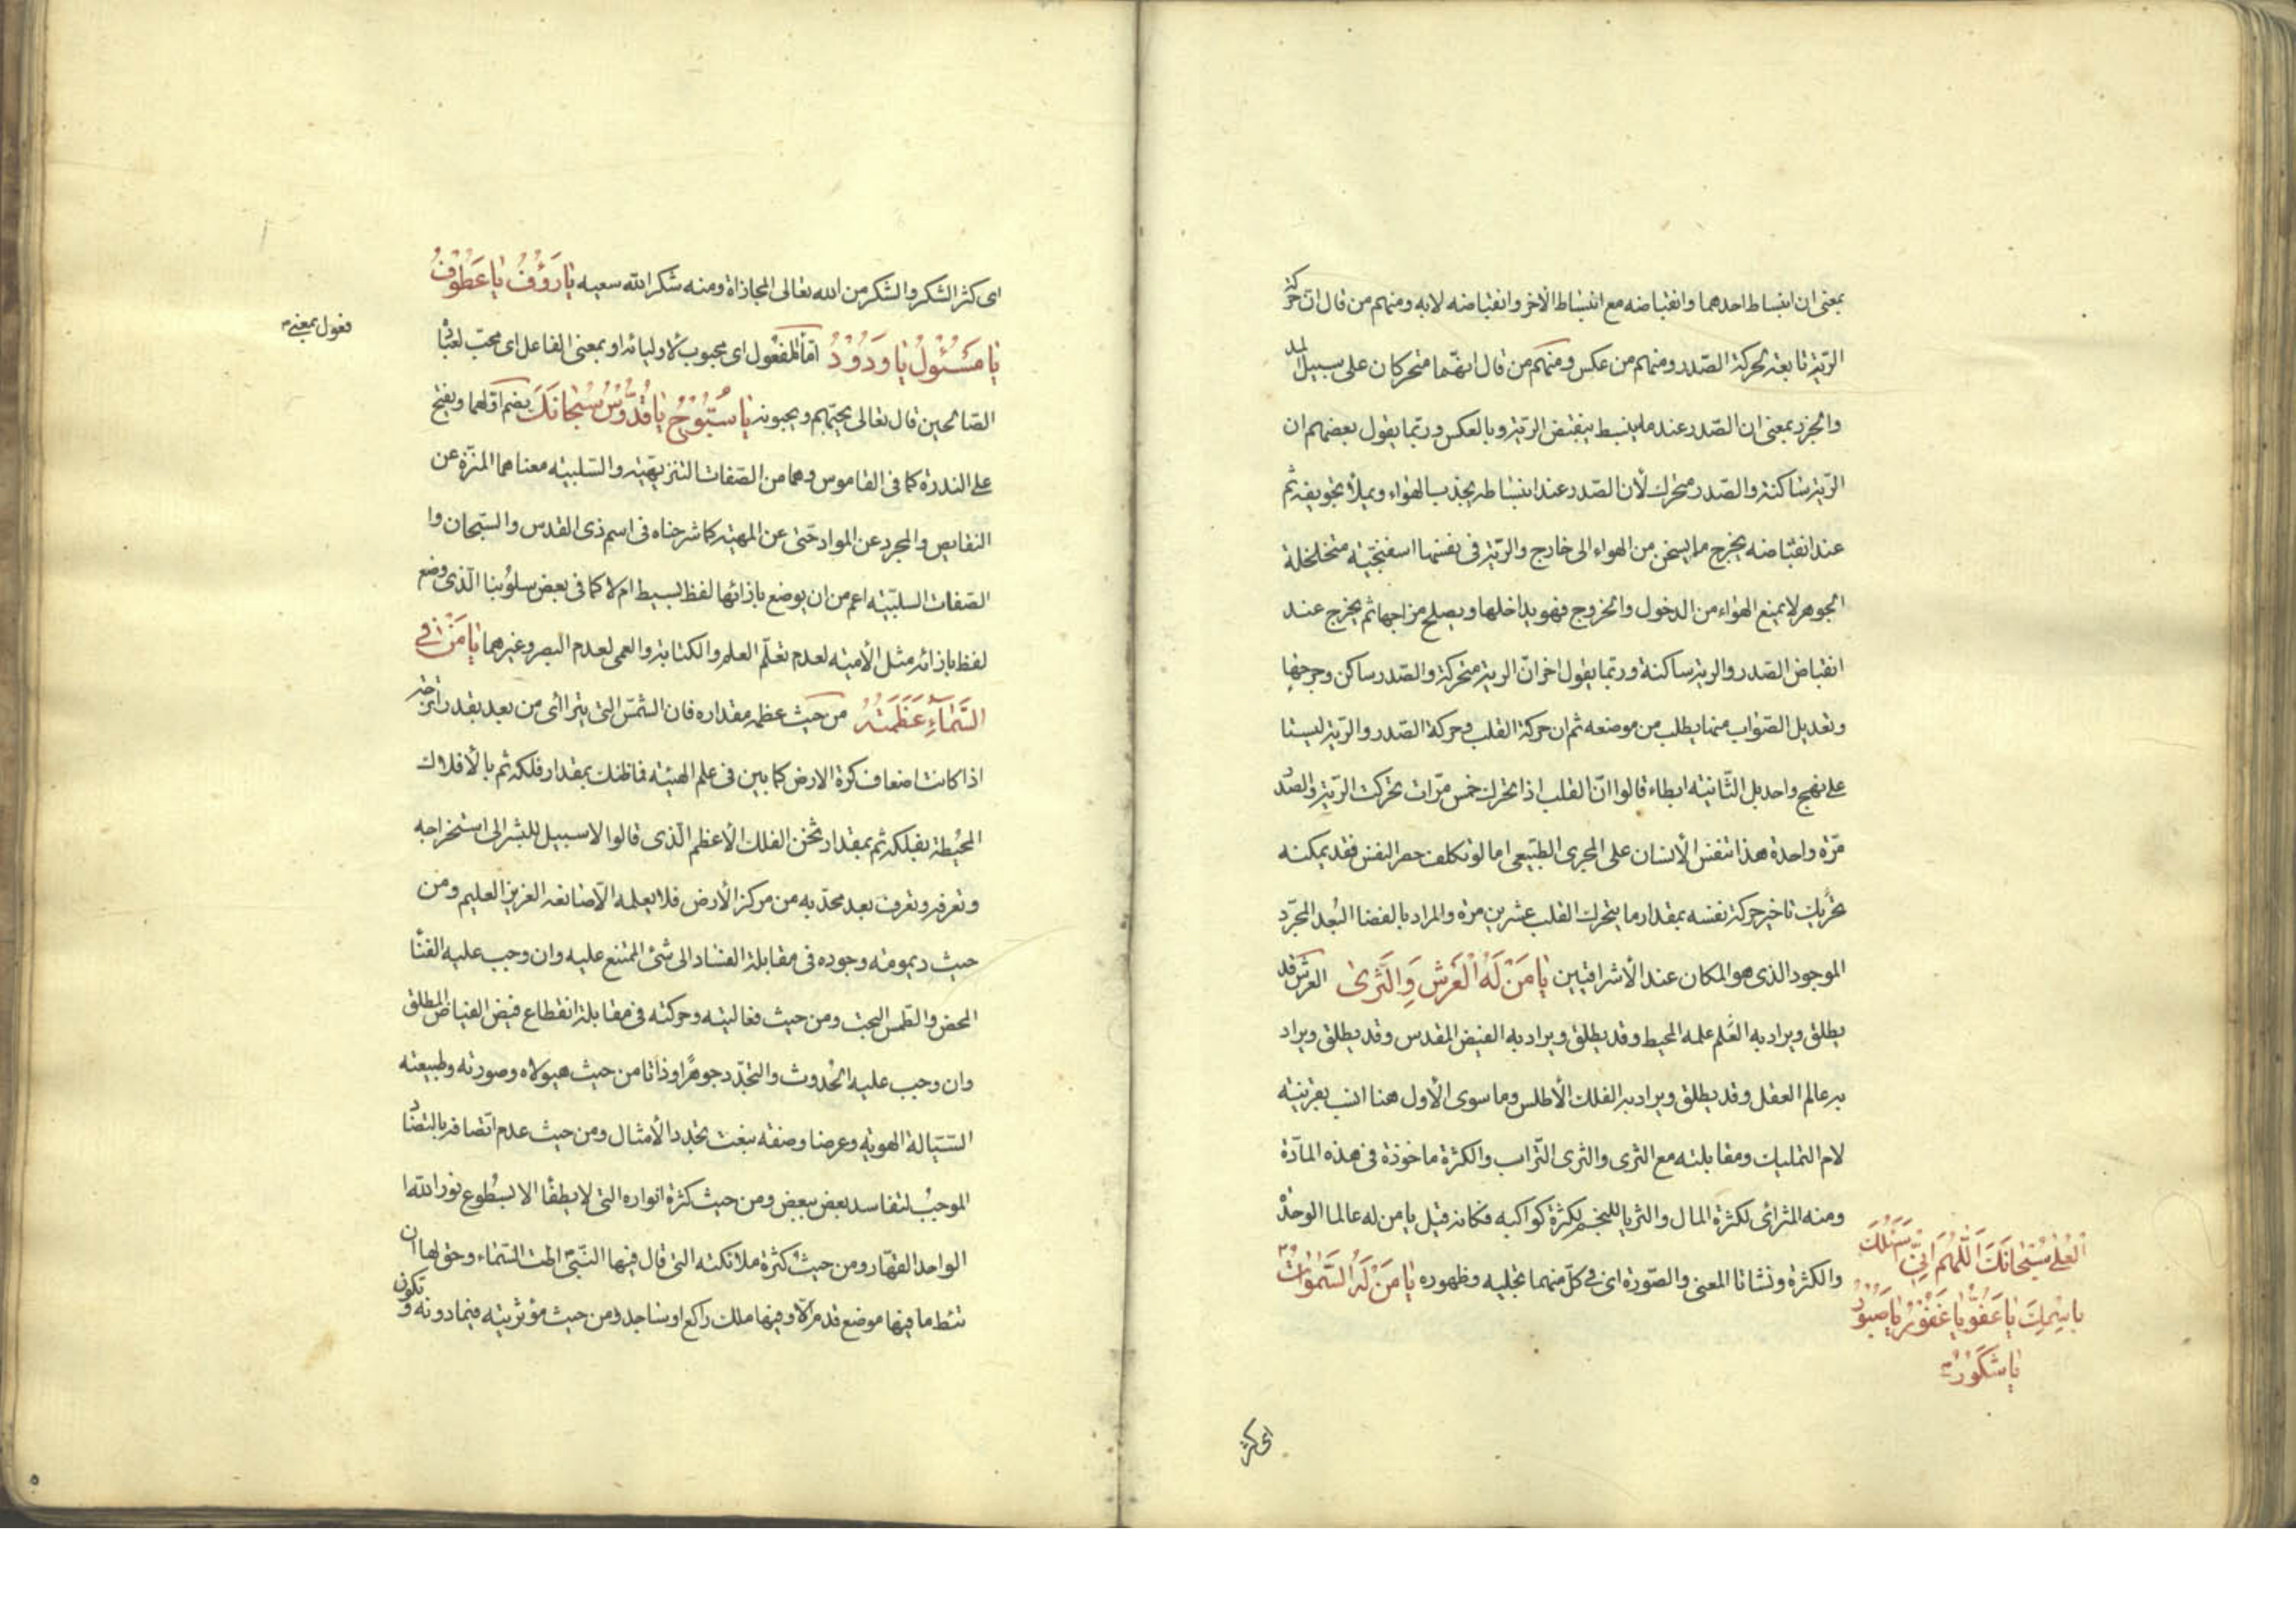 بمعنى ان انبساط احدهما وانقباضه مع انبساط الاخر وانقباضه لا به ومنهم من قال ان حركة
الرّية تابعة لحركة الصّدر ومنهم من عكس ومنهم من قال انهما متحركان على سبيل المد
والجزر بمعنى ان الصّدر عند ما ينبسط ينقبض الرّية وبالعكس وربّما يقول بعضهم ان
الرّية ساكنة والصّدر متحرك لأن الصّدر عند انبساطه يجذب الهواء ويملأ تجويفه ثم
عند انقباضه يخرج ما يسخن من الهواء الى خارج والرّية فى نفسها اسفنجيّة متخلخلة
الجوهر لا يمنع الهواء من الدخول والخروج فهو يداخلها ويصلح مزاجها ثم يخرج عند
انقباض الصّدر والرية ساكنة وربّما يقول اخر انّ الرية متحركة والصّدر ساكن وجرحها
وتعديل الصّواب منها يطلب من موضعه ثم ان حركة القلب وحركة الصّدر والرّية ليستا
على نهج واحد بل الثّانية ابطاء قالوا انّ القلب اذا تحرك خمس مرّات تحركت الرّية والصّدر
مرّة واحدة هذا تنفس الأنسان على المجرى الطبيعى اما لو تكلف حصر النفس فقد يمكنه
تحريك تاخير حركة نفسه بمقدار ما يتحرك القلب عشرين مرة والمراد بالفضا البُعد المجرّد
الموجود الذى هو المكان عند الأشراقيين يَا مَنْ لَهُ الْعَرْشُ وَالثَّرىٰ العرش قد
يطلق ويراد به العلم علمه المحيط وقد يطلق ويراد به الفيض المقدس وقد يطلق ويراد
به عالم العقل وقد يطلق ويراد به الفلك الأطلس وما سوى الأول هنا انسب بقرينة
لام التمليك ومقابلته مع الثرى والثرى التّراب والكثرة ماخوذة فى هذه المادّة
ومنه المثرائى لكثرة المال والثريا للنجم لكثرة كواكبه فكانه قيل يا من له عالما الوحدة
والكثرة ونشاتا المعنى والصّورة اى فى كلّ منهما تجليه وظهوره يَا مَنْ لَهُ السَّمٰوَاتُ
الْعُلىٰ سُبْحَانَكَ اَللّٰهُمَّ اِنِّى اَسْئَلُكَ
بِاسْمِكَ يَا عَفُوُّ يَا غَفُورُ يَا صَبُورُ
يَا شَكُورُ
اى كثر
اى كثر الشكر والشكر من الله تعالى المجازاة ومنه شكر الله سعيه يَا رَؤُفُ يَا عَطُوفُ
يَا مَسْئُولُ يَا وَدُودُ اما المفعول اى محبوب لأوليائه او بمعنى الفاعل اى محبّ لعباده
فعول بمعنى
الصّالحين قال تعالى يحبّهم ويحبونه يَا سُبُّوحُ يَا قُدُّوسُ سُبْحَانَكَ بضم اولهما ويفتح
على الندرة كما فى القاموس وهما من الصّفات التنزيهيّة والسّلبيه معناهما المنزّه عن
النقايص والمجرد عن المواد حتى عن المهية كما شرحناه فى اسم ذى القدس والسّبحان وا
الصّفات السلبيّة اعم من ان يوضع بازائها لفظ بسيط ام لا كما فى بعض سلوبنا الّذى وضع
لفظ بازائه مثل الأميّه لعدم تعلّم العلم والكتابة والعمى لعدم البصر وغيرهما يَا مَنْ فِى
السَّمَاءِ عَظَمَتُهُ من حيث عظم مقداره فان الشّمس التى يترا اى من بعيد بقدر اترجة
اذا كانت اضعاف كرة الارض كما بين فى علم الهيئه فما ظنك بمقدار فلكه ثم بالأفلاك
المحُيطة بفلكه ثم بمقدار ثخن الفلك الأعظم الّذى قالوا لا سبيل للبشر الى استخراجه
وتعرفه وتعرف بعد محدّبه من مركز الأرض فلا يعلمه الّا صانعه العزيز العليم ومن
حيث ديمومته وجوده فى مقابلة الفساد الى شئ الممتنع عليه وان وجب عليه الفنأ
المحض والطمس البحت ومن حيث فعاليته وحركته فى مقابلة انقطاع فيض الفياض المطلق
وان وجب عليه الحُدوث والتجدّد جوهرًا وذاتا من حيث هيولاه وصورته وطبيعته
السّيالة الهوية وعرضا وصفة بنعت تجدد الأمثال ومن حيث عدم اتّصافه بالتضاد
الموجب لتفاسد بعض ببعض ومن حيث كثرة انواره التى لا يطفأ الا بسُطوع نور الله ا
الواحد القهّار ومن حيث كثرة ملائكته التى قال فيها النّبىّ اطت السّماء وحق لها ان
تئط ما فيها موضع قدم الّا وفيها ملك راكع او ساجد ومن حيث مؤثريته فيما دونه و
تكون